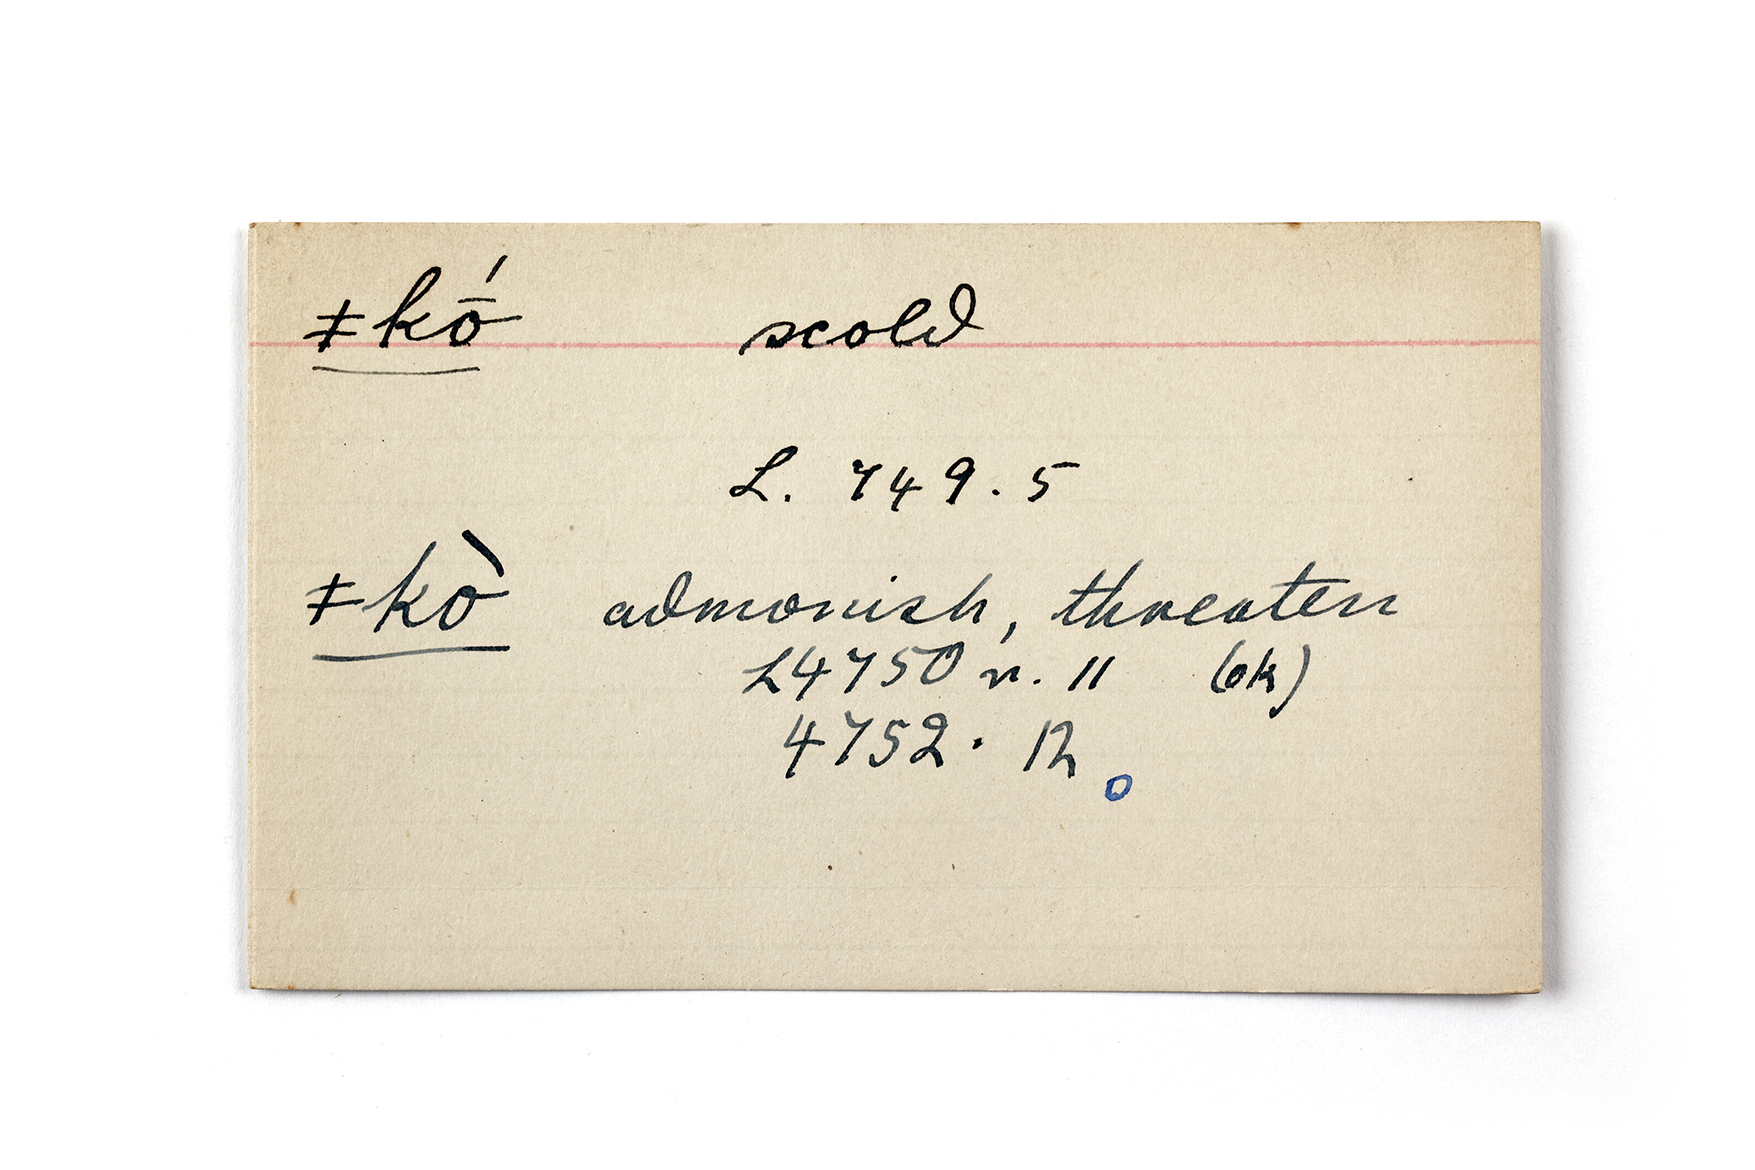 ǂkṓ scold
L. 749.5
ǂkò admonish, threaten
L4750 r. 11 (ok)
4752. 12